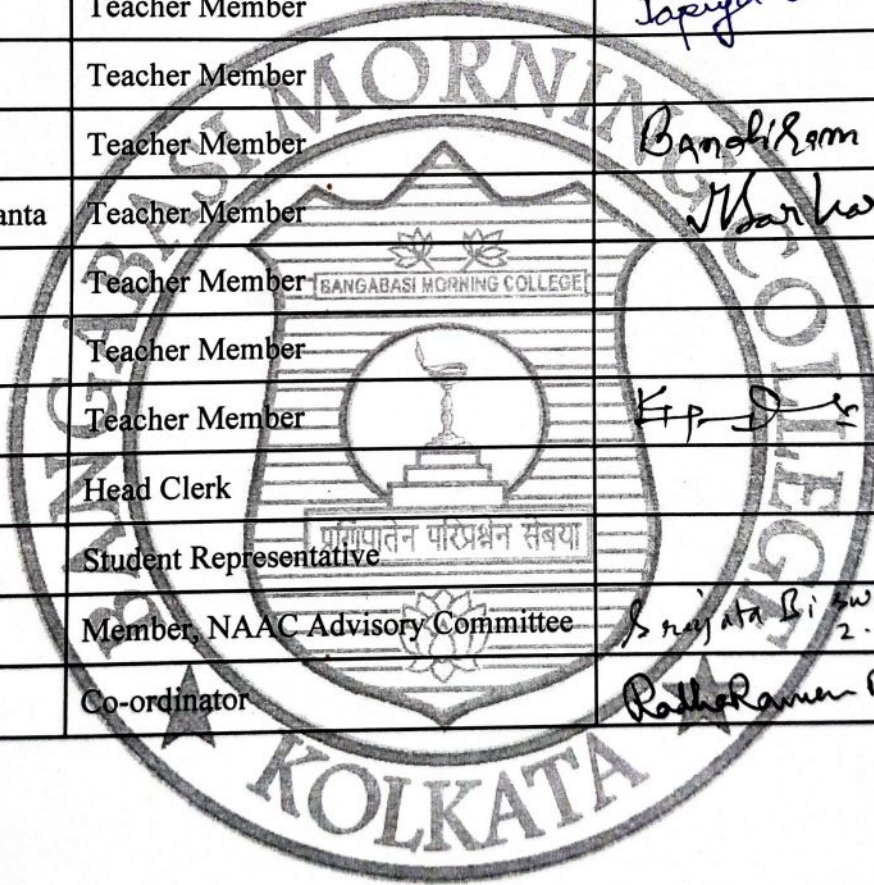 Teacher Member
Teacher Member
Teacher Member Banshiram
anta Teacher Member
Teacher Member
Teacher Member
Teacher Member
Head Clerk
Student Representative
Member, NAAC Advisory Committee Srijata Bisw
2.
Co-ordinator RadhaRaman
BANGABASI MORNING COLLEGE
KOLKATA
BANGABASI MORNING COLLEGE
प्रणिपातेन परिप्रश्नेन सेवया